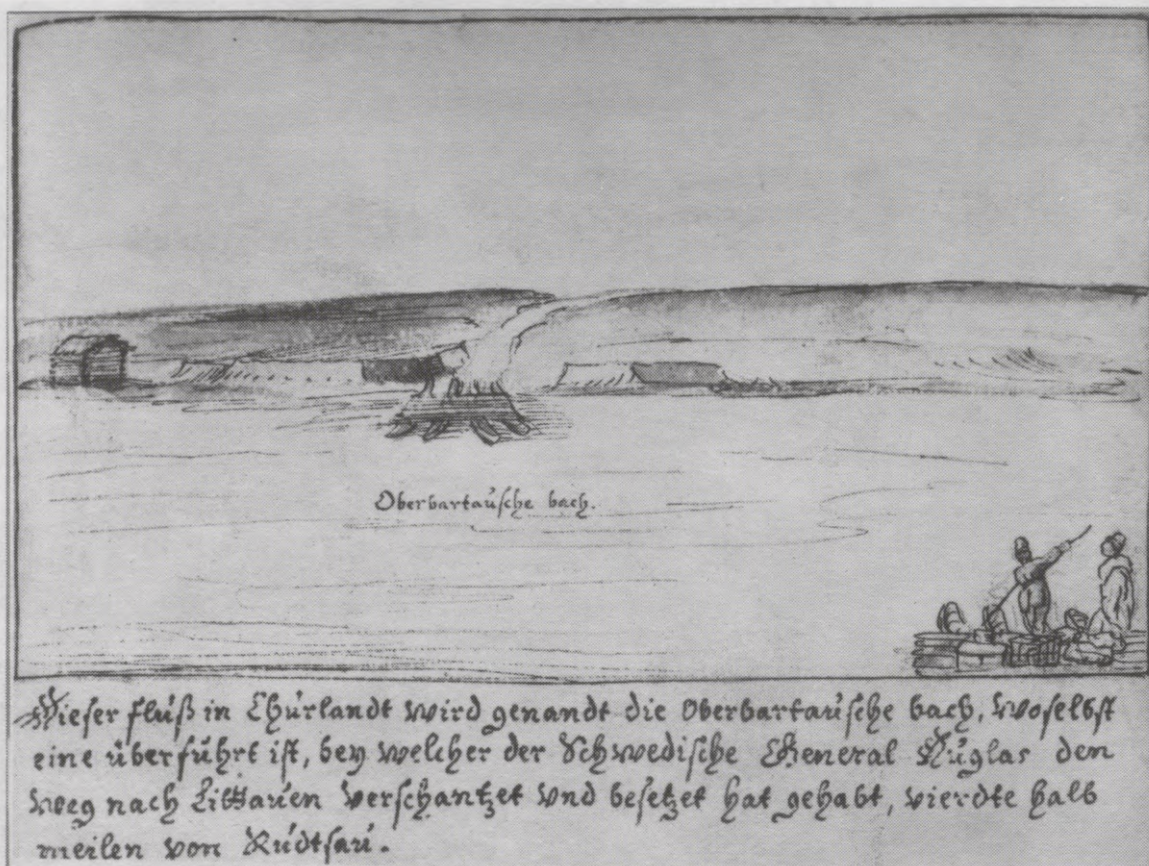 Oberbartaúsche bach.
Dieser fluß in Chúrlandt wird genandt die Oberbartaúsche bach, woselbst
eine úberfúhrt ist, bey welcher der Schwedische General Dúglas den
weg nach Littaúen verschantzet vnd besetzet hat gehabt, vierdte halb
meilen von Rúdtsaú.